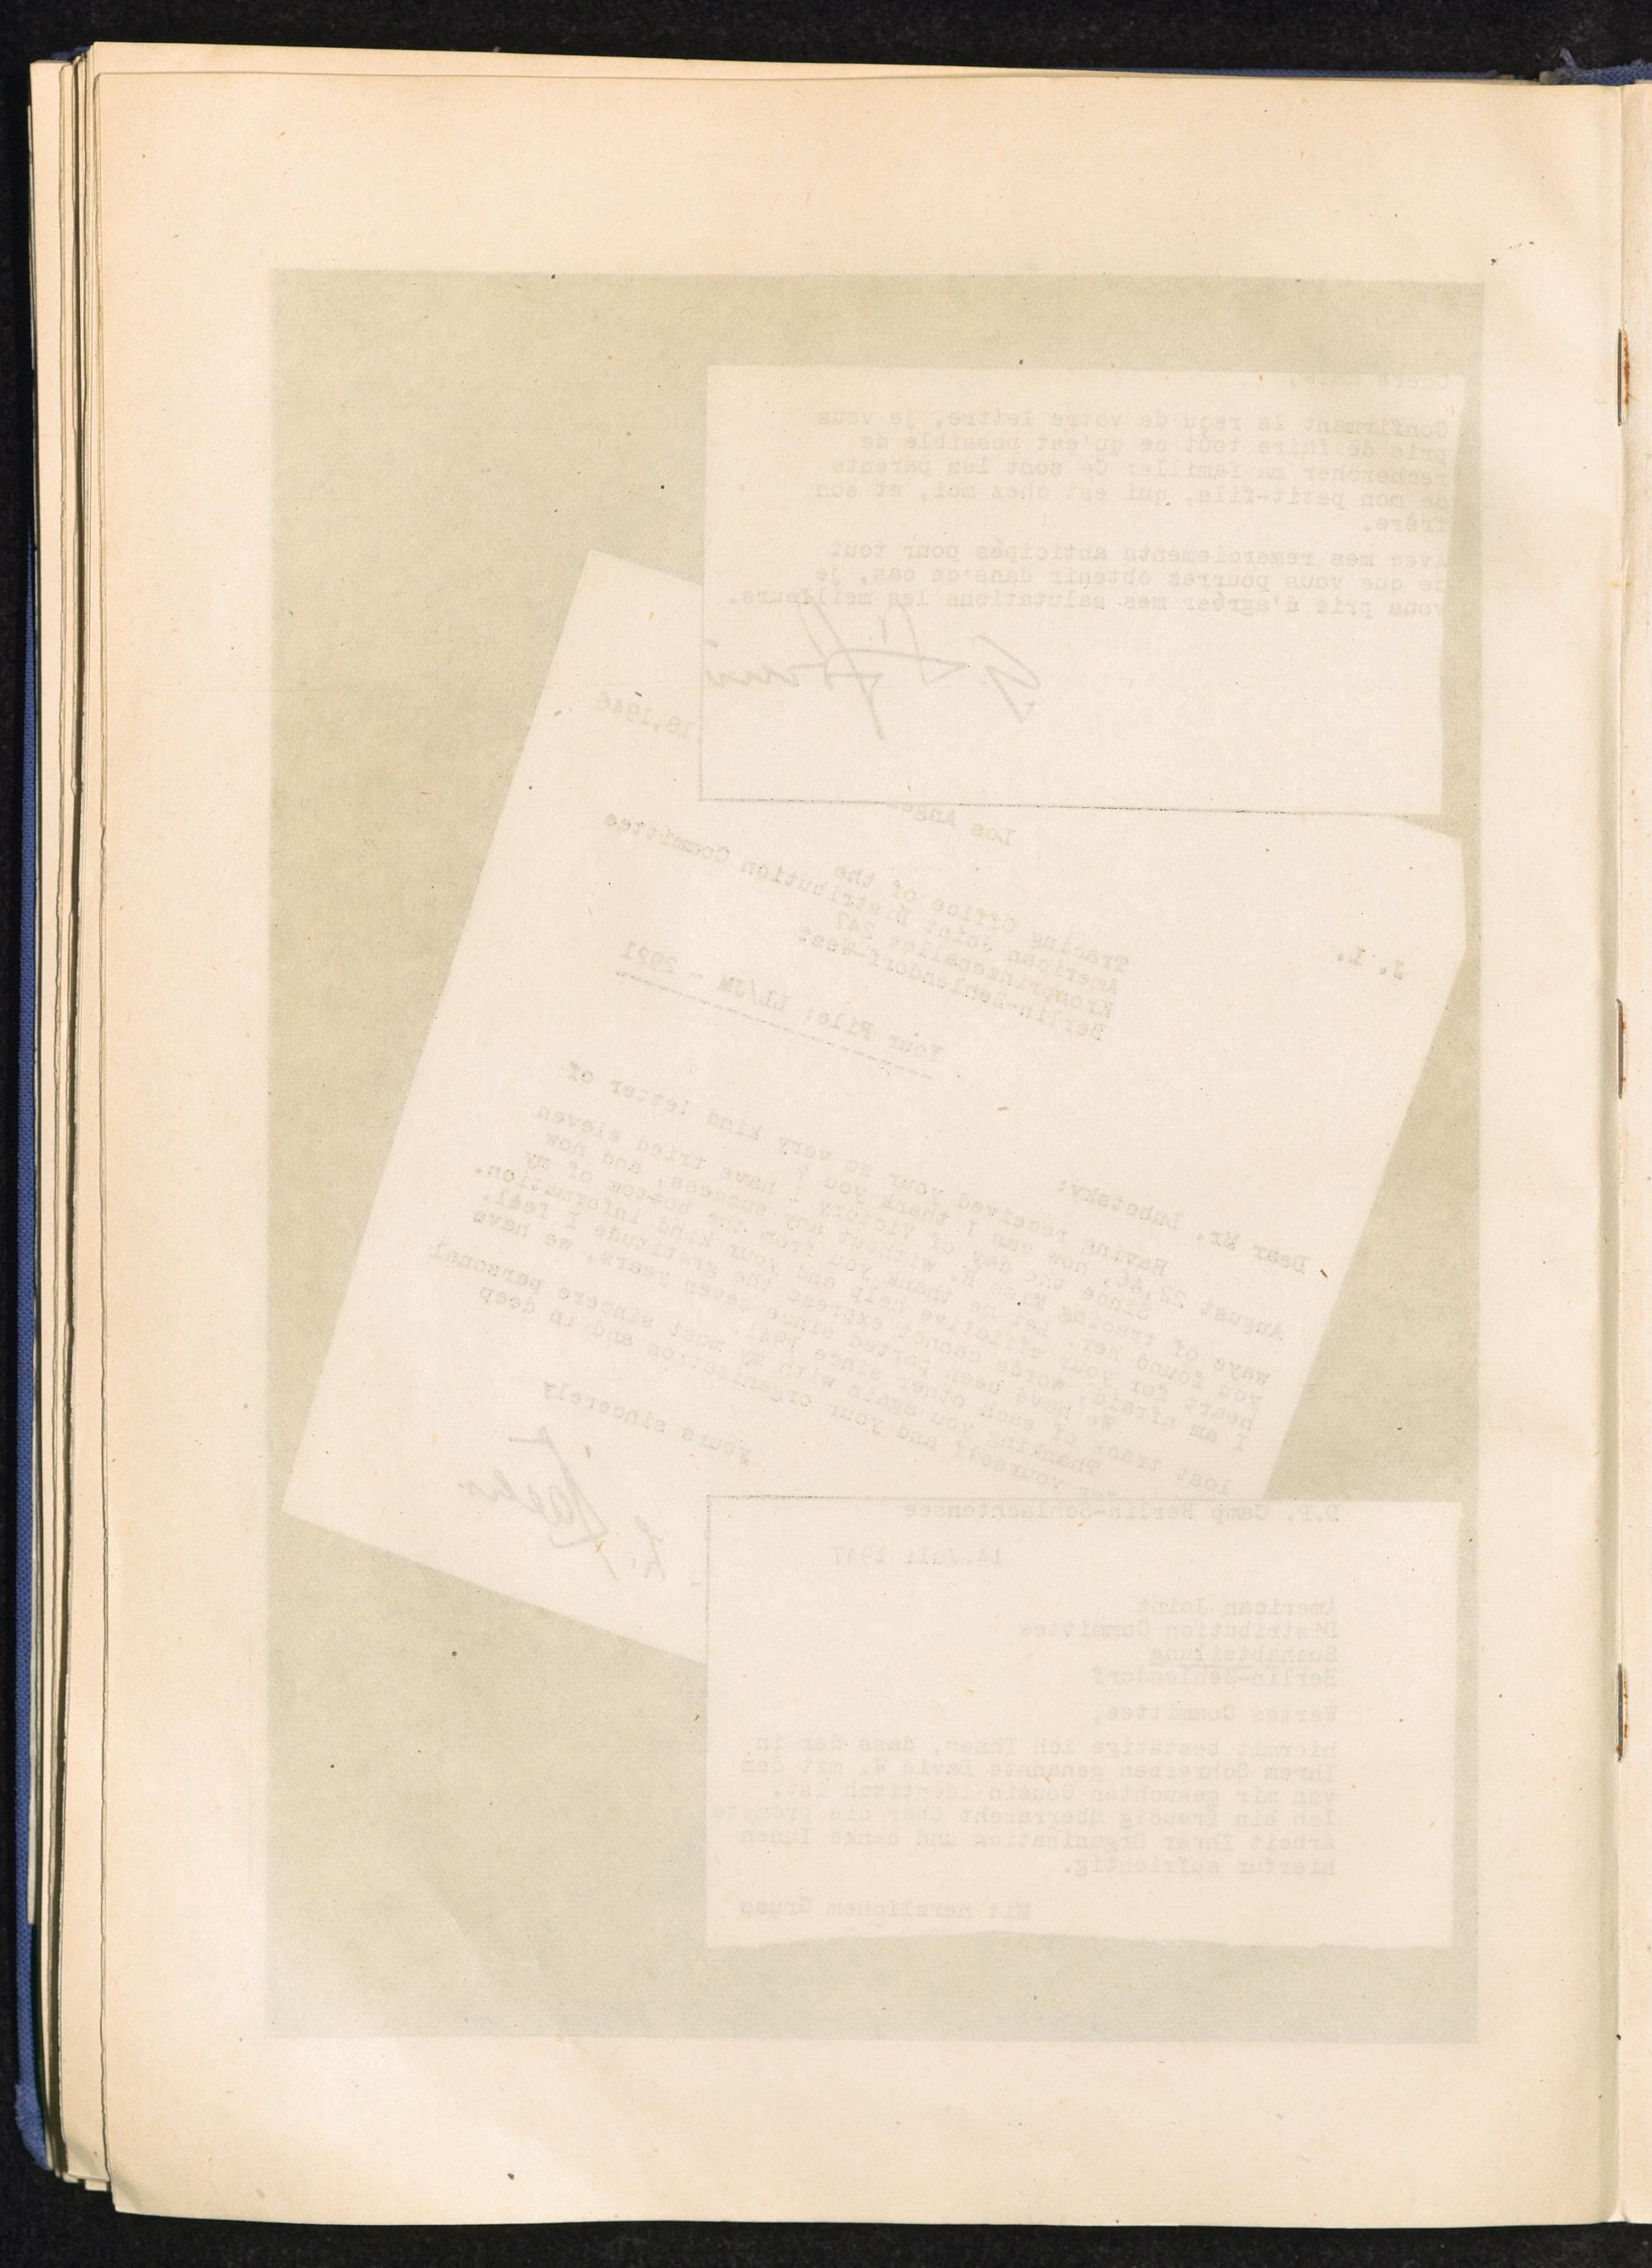 Confirmant le reçu de votre lettre, je vous
prie de faire tout ce qu'est possible de
rechercher ma famille: Ce sont les parents
de mon petit-fils, qui est chez moi, et son
frère.
Avec mes remerciements anticipés pour tout
ce que vous pourrez obtenir dans ce cas, je
vous prie d'agréer mes salutations les meilleurs.
18,1946
Los
J. L.
Tracing Office of the
American Joint Distribution Committee
Kronprinzenallee 247
Berlin-Zehlendorf-West
Your File: LL/JM - 2921
Dear Mr. Lubetsky:
Having received your so very kind letter of
August 22,46, how can I thank you ?
Since the day of Victory I have tried eleven
ways of tracing Miss R. without any success, and now
you found her. Let me thank you from the bottom of my
heart for your effictive help and your kind information.
I am afraid, words cannot express the gratitude I feel.
We have been parted since seven years, we have
lost track of each other since 1941.
Thanking you again with my most sincere personal
for yourself and your organization and in deep
yours sincerely
D.P. Camp Berlin-Schlachtensee
14.Juli 1947
American Joint
Distribution Committee
Suchabteilung
Berlin-Zehlendorf
Wertes Committee,
hiermit bestätige ich Ihnen, dass der in
Ihrem Schreiben genannte David W. mit dem
von mir gesuchten Cousin identisch ist.
Ich bin freudig überrascht über die prompte
Arbeit Ihrer Organisation und danke Ihnen
hierfür aufrichtig.
Mit herzlichem Gruss